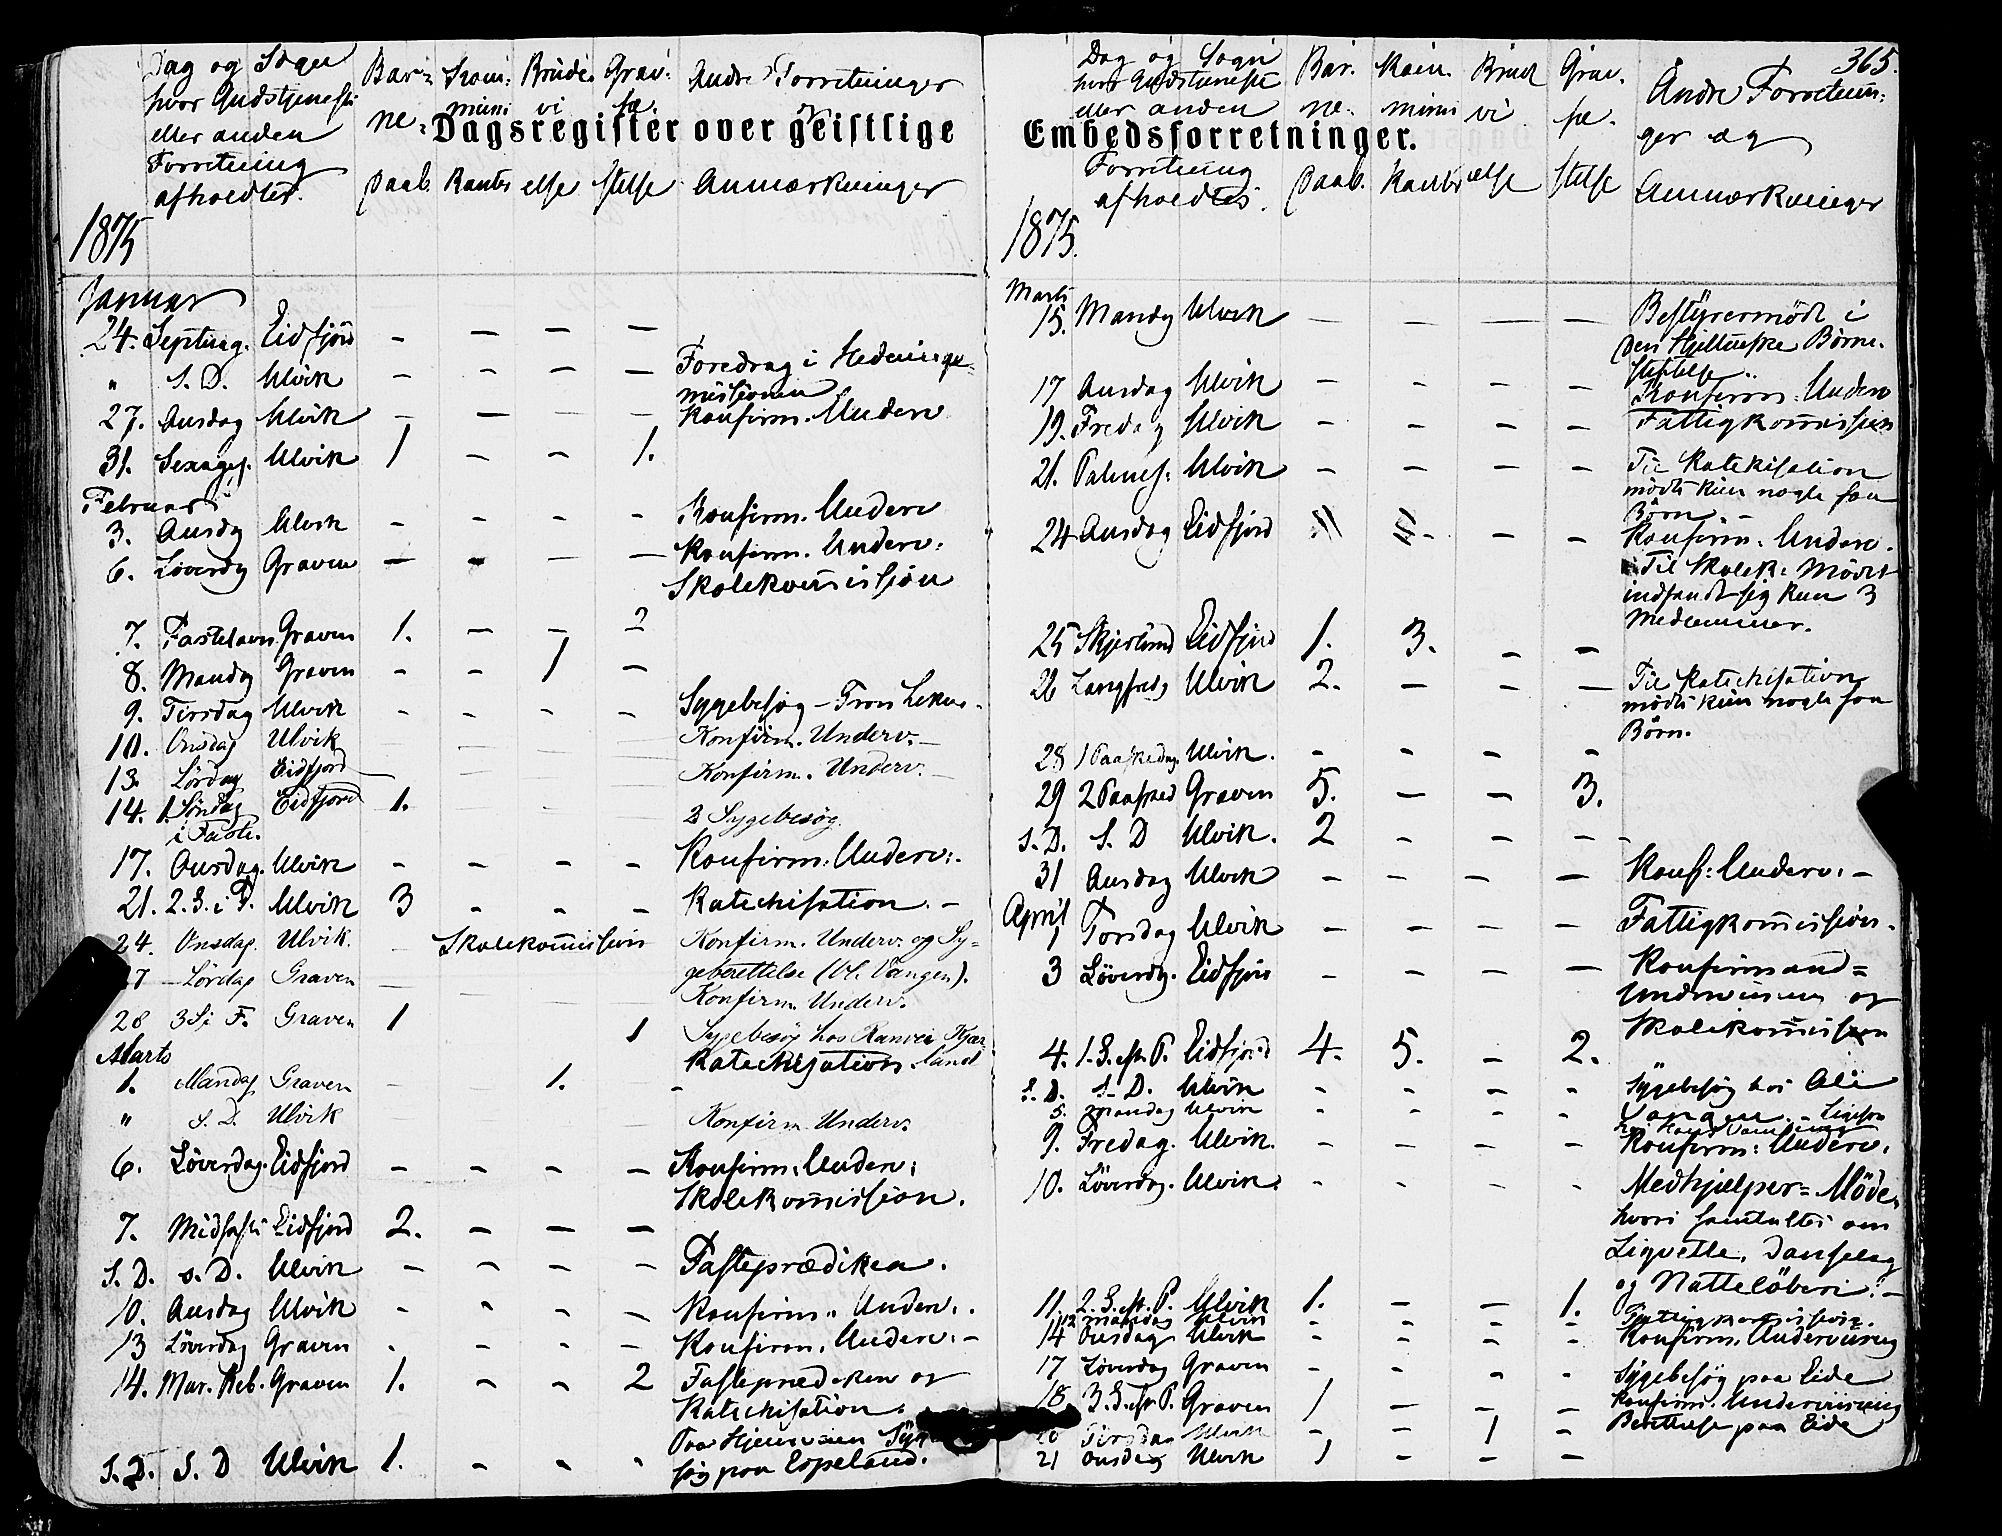 Dagsregister over geistlige
Dag og Sogn Barne- Kom- Brude- Grav-
hvor Gudstjeneste muni vi fæ- Andre Forretninger
eller anden og
Forretning
afholdtes. Daab. Kanter else stelse Anmærkninger
1875
Januar
24. Septuag. Eidfjord - - - -
" S. D. Ulvik - - - - Foredrag i Hedninge-
missionen
27. Onsdag Ulvik - - - - Konfirm. Underv
31. Sexages. Ulvik 1 - - 1.
Februar
3. Onsdg Ulvik - - - - Konfirm. Underv
6. Løverdg Graven - - - - Konfirm. Underv:
Skolekommission
7. Fastelavn Graven 1. - - 2
8. Mandg Graven - - 1 -
9. Tirsdag Ulvik - - - - Sygebesøg
10. Onsdag Ulvik - - - - Konfirm. Underv. -
13. Lördag Eidfjord - - - - Konfirm. Underv. -
14. 1. Söndag Eidfjord 1. - - - 2 Sygebesøg.
i Faste.
17. Onsdag. Ulvik - - - - Konfirm: Underv:.
21. 2. S. i F. Ulvik 3 - - - Katechisation. -
24. Onsdag. Ulvik. - Skolekommission Konfirm. Underv. og Sy-
27 - Lördag Graven - - - - geberettelse (Vangen).
Konfirm. Underv.
28 3 S i F. Graven 1 1 Sygebesøg hos Ranvei Kjær
Marts Katechisation. land
1. Mandag Graven - 1. -
" S. D. Ulvik Konfirm. Underv.
6. Løverdag. Eidfjord - - - - Konfirm: Underv:
Skolekommission.
7. Midfaste Eidfjord 2. - - -
S. D. S. D. Ulvik - - - - Fasteprædiken.
10. Onsdag Ulvik - - - - Konfirm. Underv:.
13 Løverdag Graven - - - - Konfirm. Underv: -
14. Mar. Beb. Graven 1. - - 2 Fasteprædiken og
Katechisation.
S. D. S. D Ulvik 1. - - - søg paa Espeland.
365.
Embedsforretninger.
Dag og Sogn Bar- Kom- Brud Grav-
hvor Gudstjeneste
eller anden ne- muni vi fæ- Andre Forretnin-
ger og
Forretning
afholdtes. Daab. Kanter else stelse Anmærkninger
1875.
Marts
15. Mandg Ulvik - - - - Bestyrermöde i
den Hjeltneske Börne-
stiftelse
17 Onsdag Ulvik - - - - Konfirm. Underv
19. Fredag Ulvik - - - - Fattigkommission
21. Palmes: Ulvik - - - - Til Katekisation
mödte kun nogle faa
Börn. -
24 Onsdag Eidfjord - - Konfirm. Underv.
Til Skolek: Mödet
indfandt sig kun 3
Medlemmer.
25 Skjertorsd Eidfjord 1. 3. - -
26 Langfredg Ulvik 2. - - - Til Katechisation
mödte kun nogle faa
Börn.
28 1 Paaskedag Ulvik. - - - -
29 2 Paasked Graven 5. - - 3.
S. D. S. D Ulvik. 2 - - -
31 Onsdag Ulvik - - - - Konf: Underv: -
April
1 Torsdag Ulvik - - - - Fattigkommission.
3 Løverdg. Eidfjord - - - - Konfirmand=
Underviisning og
Skolekommission
4. 1. S. eft. P. Eidfjord 4. 5. - 2.
S. D. S. D. Ulvik - - - - Sygebesøg hos
5. Mandag Ulvik - - - -
9. Fredag. Ulvik. - - - - Konfirm: Underv.
10. Löverdag. Ulvik. - - - - Medhjælper=Möde,
hvori samtaltes om
Ligvelte, Danselag
og Natteløberi. -
11. 2. S. eft. P. Ulvik 1. - - 1.
12 Mandag Ulvik - - - - Fattigkommission.
14 Onsdag Ulvik - - - - Konfirm. Underviisning
17 Løverdag Graven - - - - Sygebesøg paa Eide
18. 3. S. eft. P. Graven 1 - - - Konfirm. Underviisning
20 Tirsdag Ulvik - - 1 - Berettelse paa Eide
21 Onsdag Ulvik 1 - - -